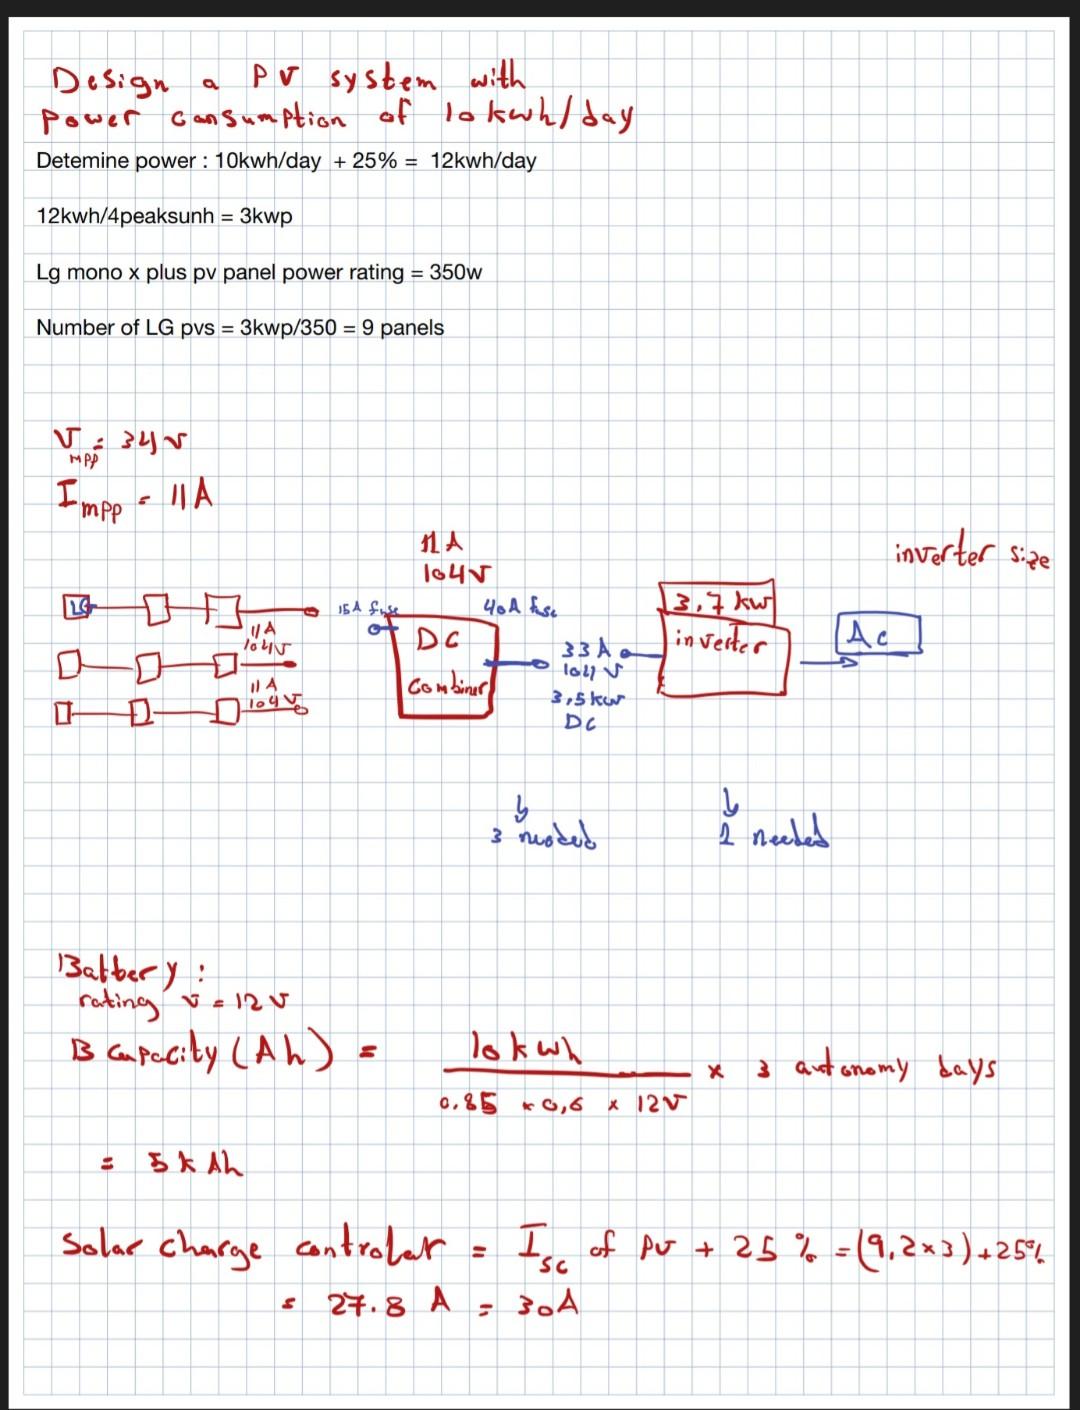 Design a PV system with
Power consumption of 10kwh/day
Detemine power : 10kwh/day + 25% = 12kwh/day
12kwh/4peaksunh = 3kwp
Lg mono x plus pv panel power rating = 350w
Number of LG pvs = 3kwp/350 = 9 panels
V mpp = 34v
I mpp = 11A
11A
104V
inverter size
LG
15A fuse
40A fuse
3,7 kw
inverter
Ac
11A
104V
DC
Combiner
33A
104V
3,5kw
DC
11A
104V
3 needed
1 needed
Battery :
rating V = 12V
B Capacity (Ah) = 10kwh / 0.85 x 0,6 x 12V x 3 autonomy days
= 5kAh
Solar charge controler = Isc of PV + 25 % = (9,2x3)+25%
= 27.8 A = 30A